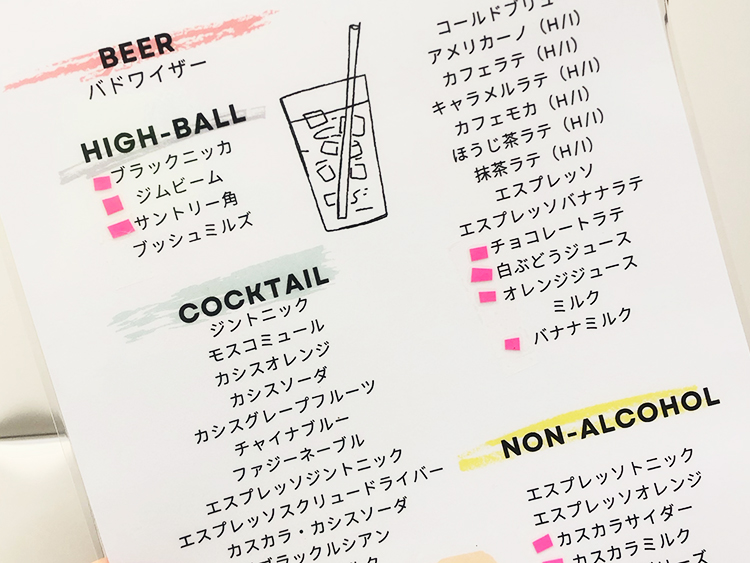 BEER
バドワイザー
HIGH-BALL
ブラックニッカ
ジムビーム
サントリー角
ブッシュミルズ
COCKTAIL
ジントニック
モスコミュール
カシスオレンジ
カシスソーダ
カシスグレープフルーツ
チャイナブルー
ファジーネーブル
エスプレッソジントニック
エスプレッソスクリュードライバー
カスカラ・カシスソーダ
ブラックルシアン
コールドブリュー
アメリカーノ（H/I）
カフェラテ（H/I）
キャラメルラテ（H/I）
カフェモカ（H/I）
ほうじ茶ラテ（H/I）
抹茶ラテ（H/I）
エスプレッソ
エスプレッソバナナラテ
チョコレートラテ
白ぶどうジュース
オレンジジュース
ミルク
バナナミルク
NON-ALCOHOL
エスプレッソトニック
エスプレッソオレンジ
カスカラサイダー
カスカラミルク